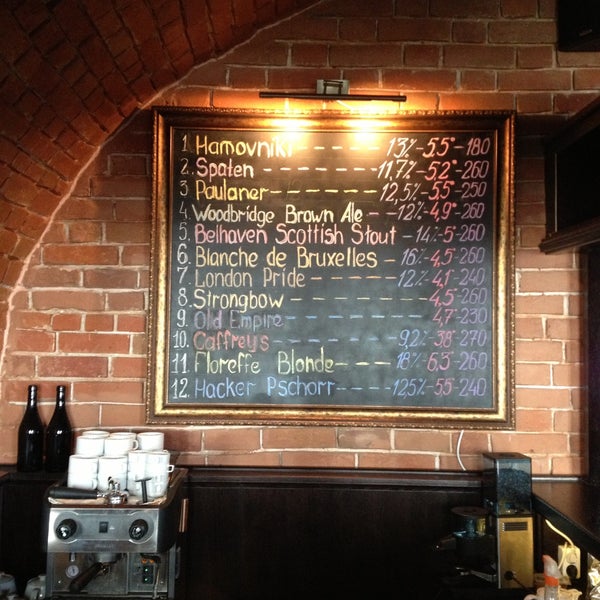 1. Hamovniki - 13% - 5.5° - 180
2. Spaten - - - - - 11,7% - 5.2° - 260
3. Paulaner - - - - - 12,5% - 5.5 - 250
4. Woodbridge Brown Ale - - 12% - 4,9° - 260
5. Belhaven Scottish Stout - 14% - 5° - 260
6. Blanche de Bruxelles - - 16% - 4,5° - 260
7. London Pride - - - - 12% - 4,1° - 240
8. Strongbow - - - - - - 4,5° - 260
9. Old Empire - - - - - - 4,7 - 230
10. Caffrey's - - - - - 9,2% - 3.8° - 270
11. Floreffe Blonde - - - - 18% - 6,3 - 260
12. Hacker Pschorr - - - - 12,5% - 5,5 - 240